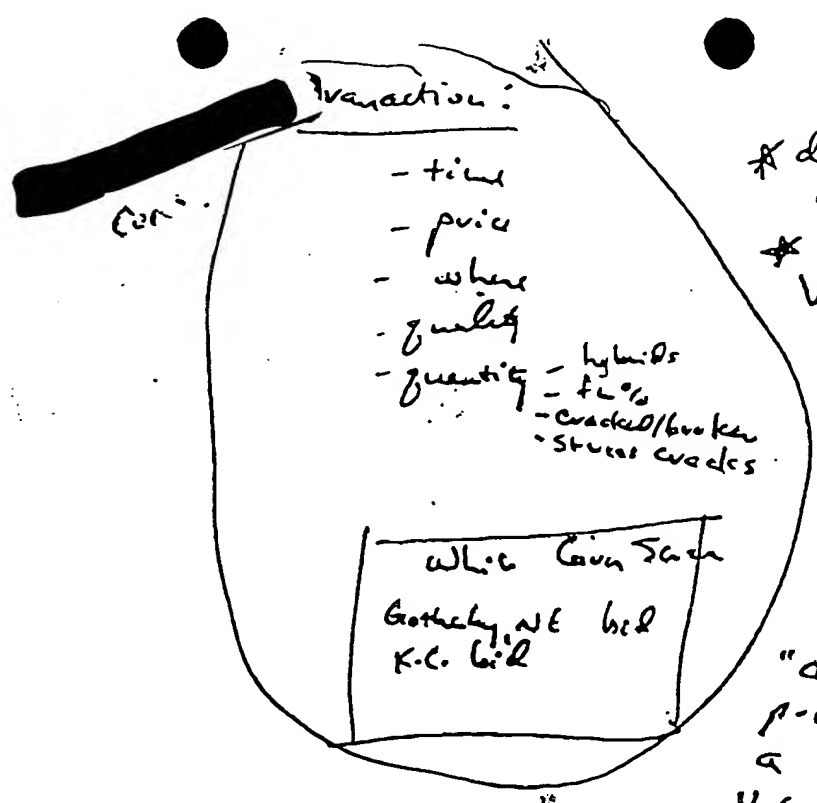 Tranaction:
- time
- price
- where
- quality
- quantity - hybrids
- fm%
- cracked/broken
- stress cracks
White Corn
Gothenburg, NE bid
K.C. bid
"a
a